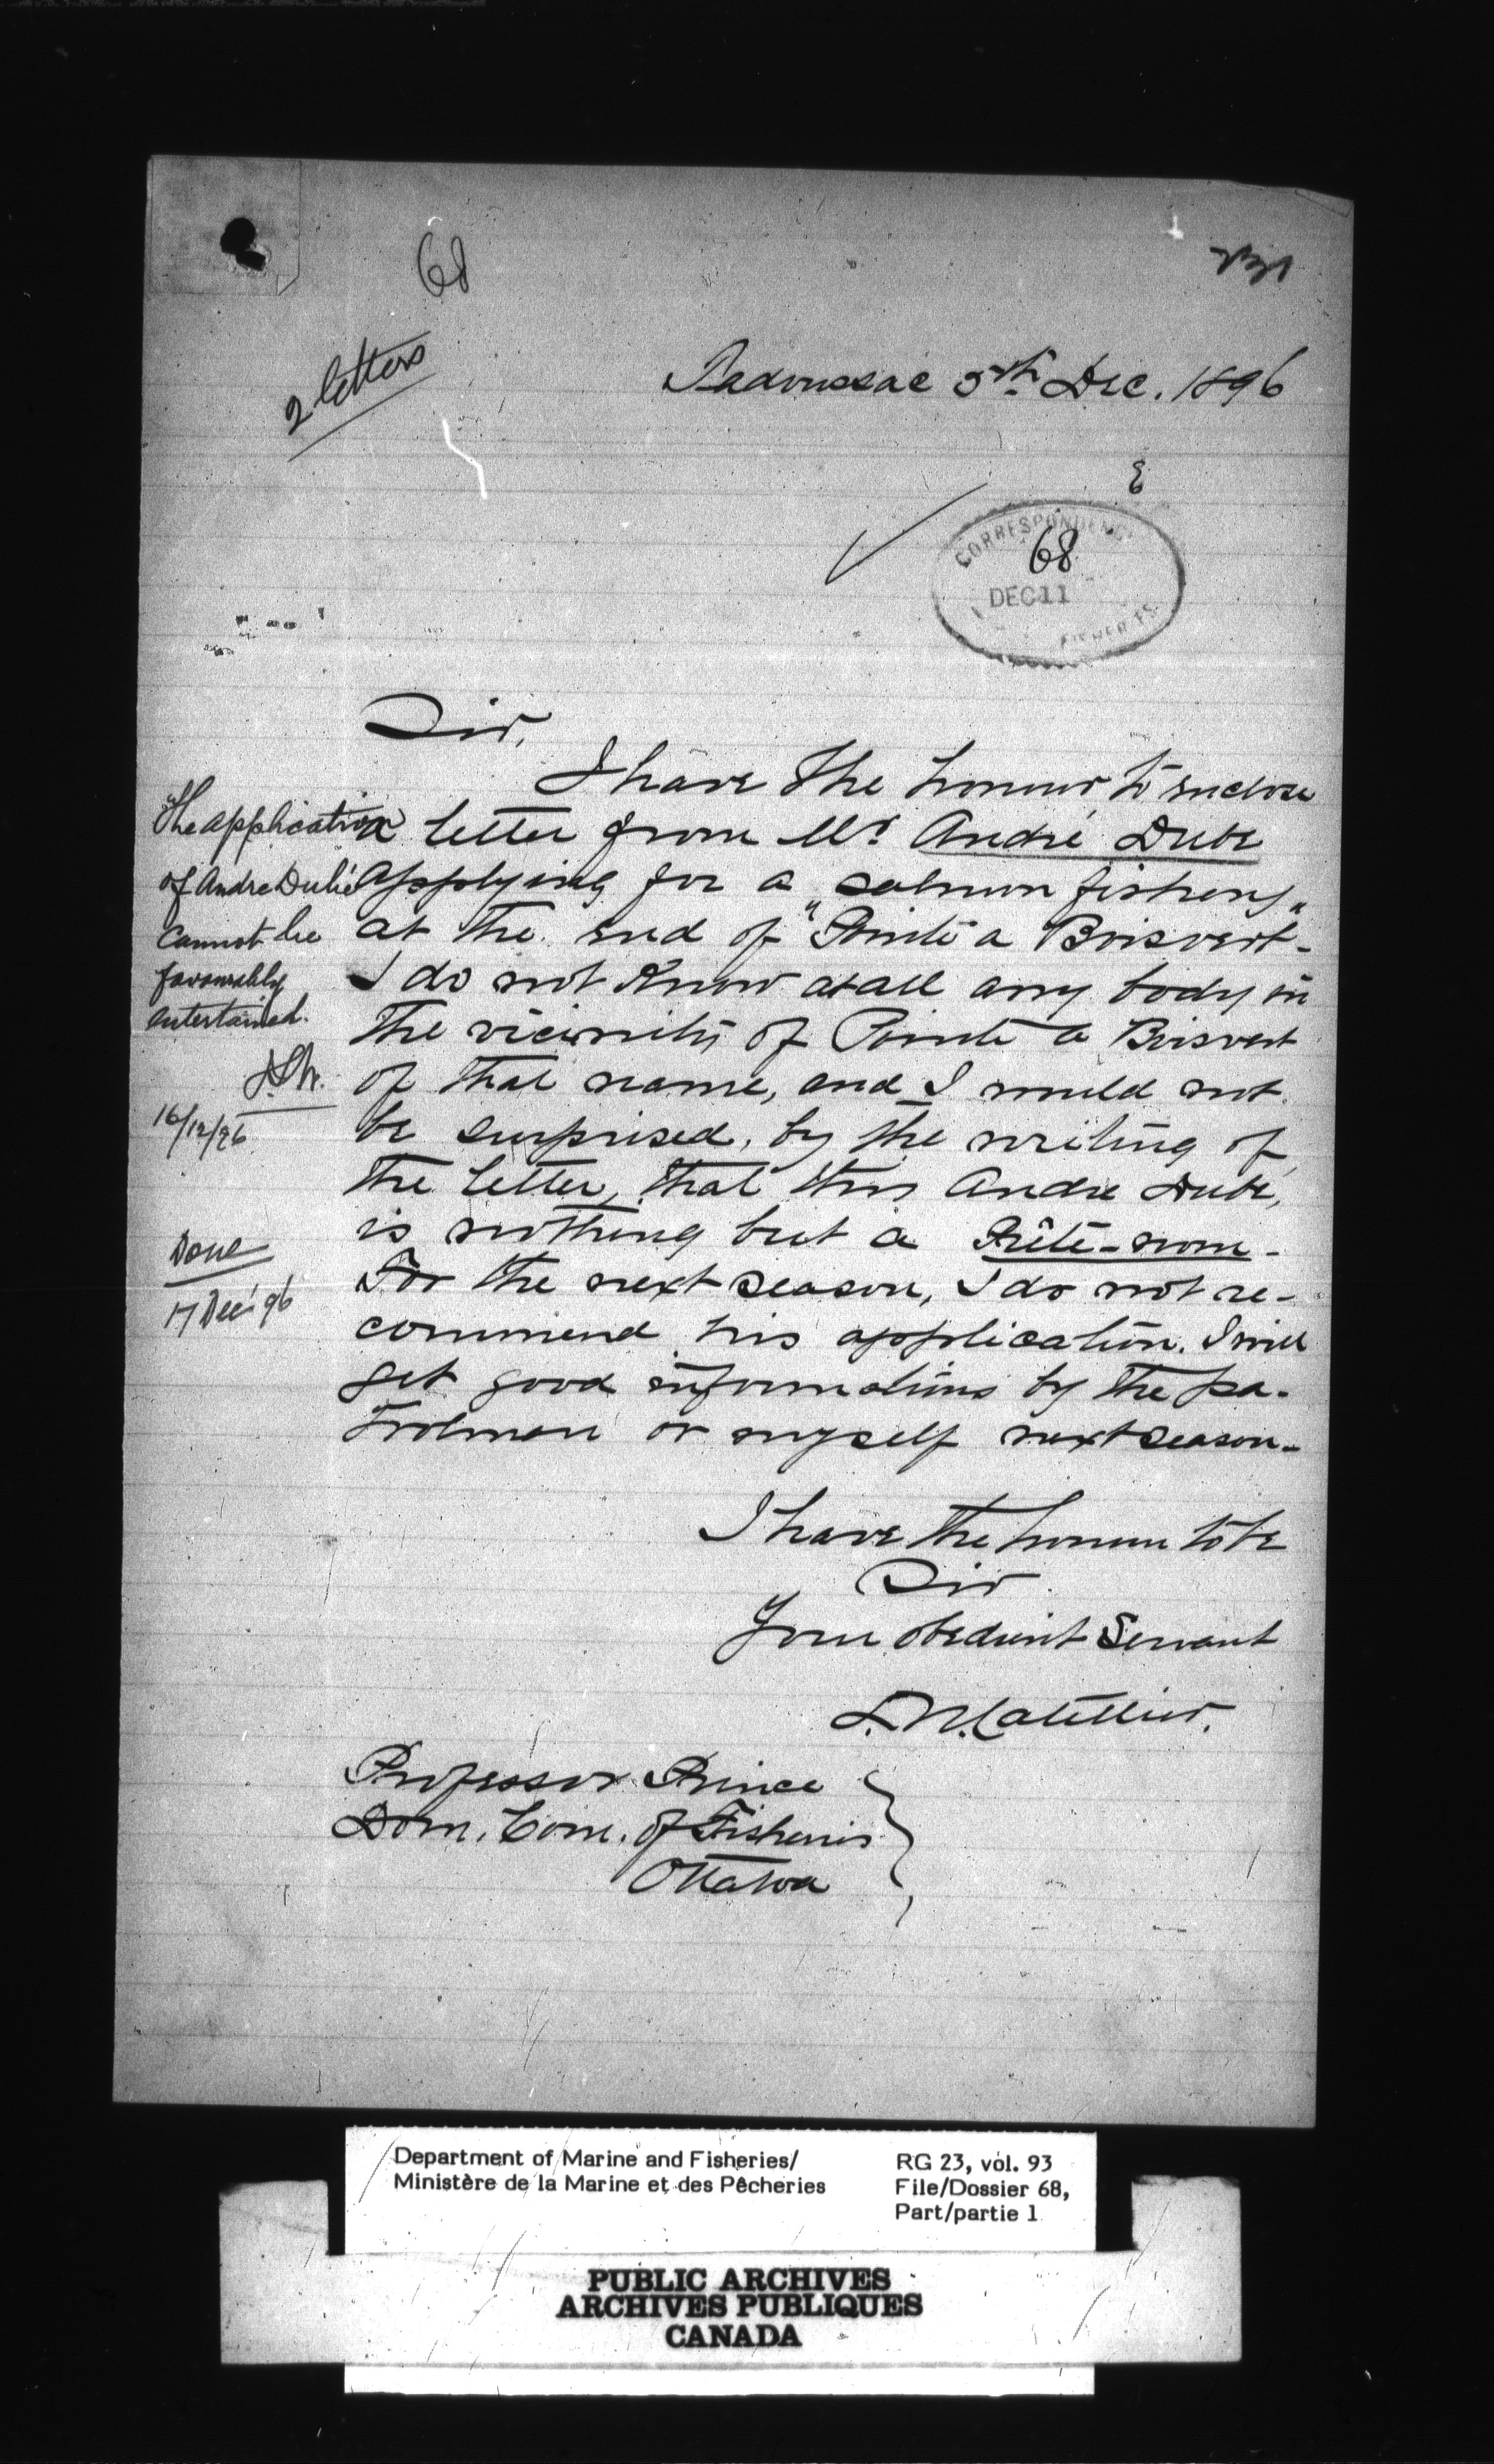 68
2 letters
Tadoussac 5th Dec. 1896
CORRESPONDENCE
68
DEC 11
FISHERIES
Sir,
I have the honour to enclose
a letter from Mr André Dube
applying for a salmon fishery
at the end of "Pointe a Boisvert"
I do not know at all any body in
the vicinity of Pointe a Boisvert
of that name, and I would not
be surprised, by the writing of
the letter, that this Andre Dube,
is nothing but a Prête-nom -
For the next season, I do not re-
commend his application. I will
get good informations by the pa-
trolman or myself next season -
I have the honour to be
Sir
Your obedient Servant
L. N. Catellier.
Professor Prince
Dom. Com. of Fisheries
Ottawa
The application
of Andre Dubé
cannot be
favourably
entertained.
16/12/96
Done
17 Dec '96
Department of Marine and Fisheries/
Ministère de la Marine et des Pêcheries
RG 23, vol. 93
File/Dossier 68,
Part/partie 1
PUBLIC ARCHIVES
ARCHIVES PUBLIQUES
CANADA